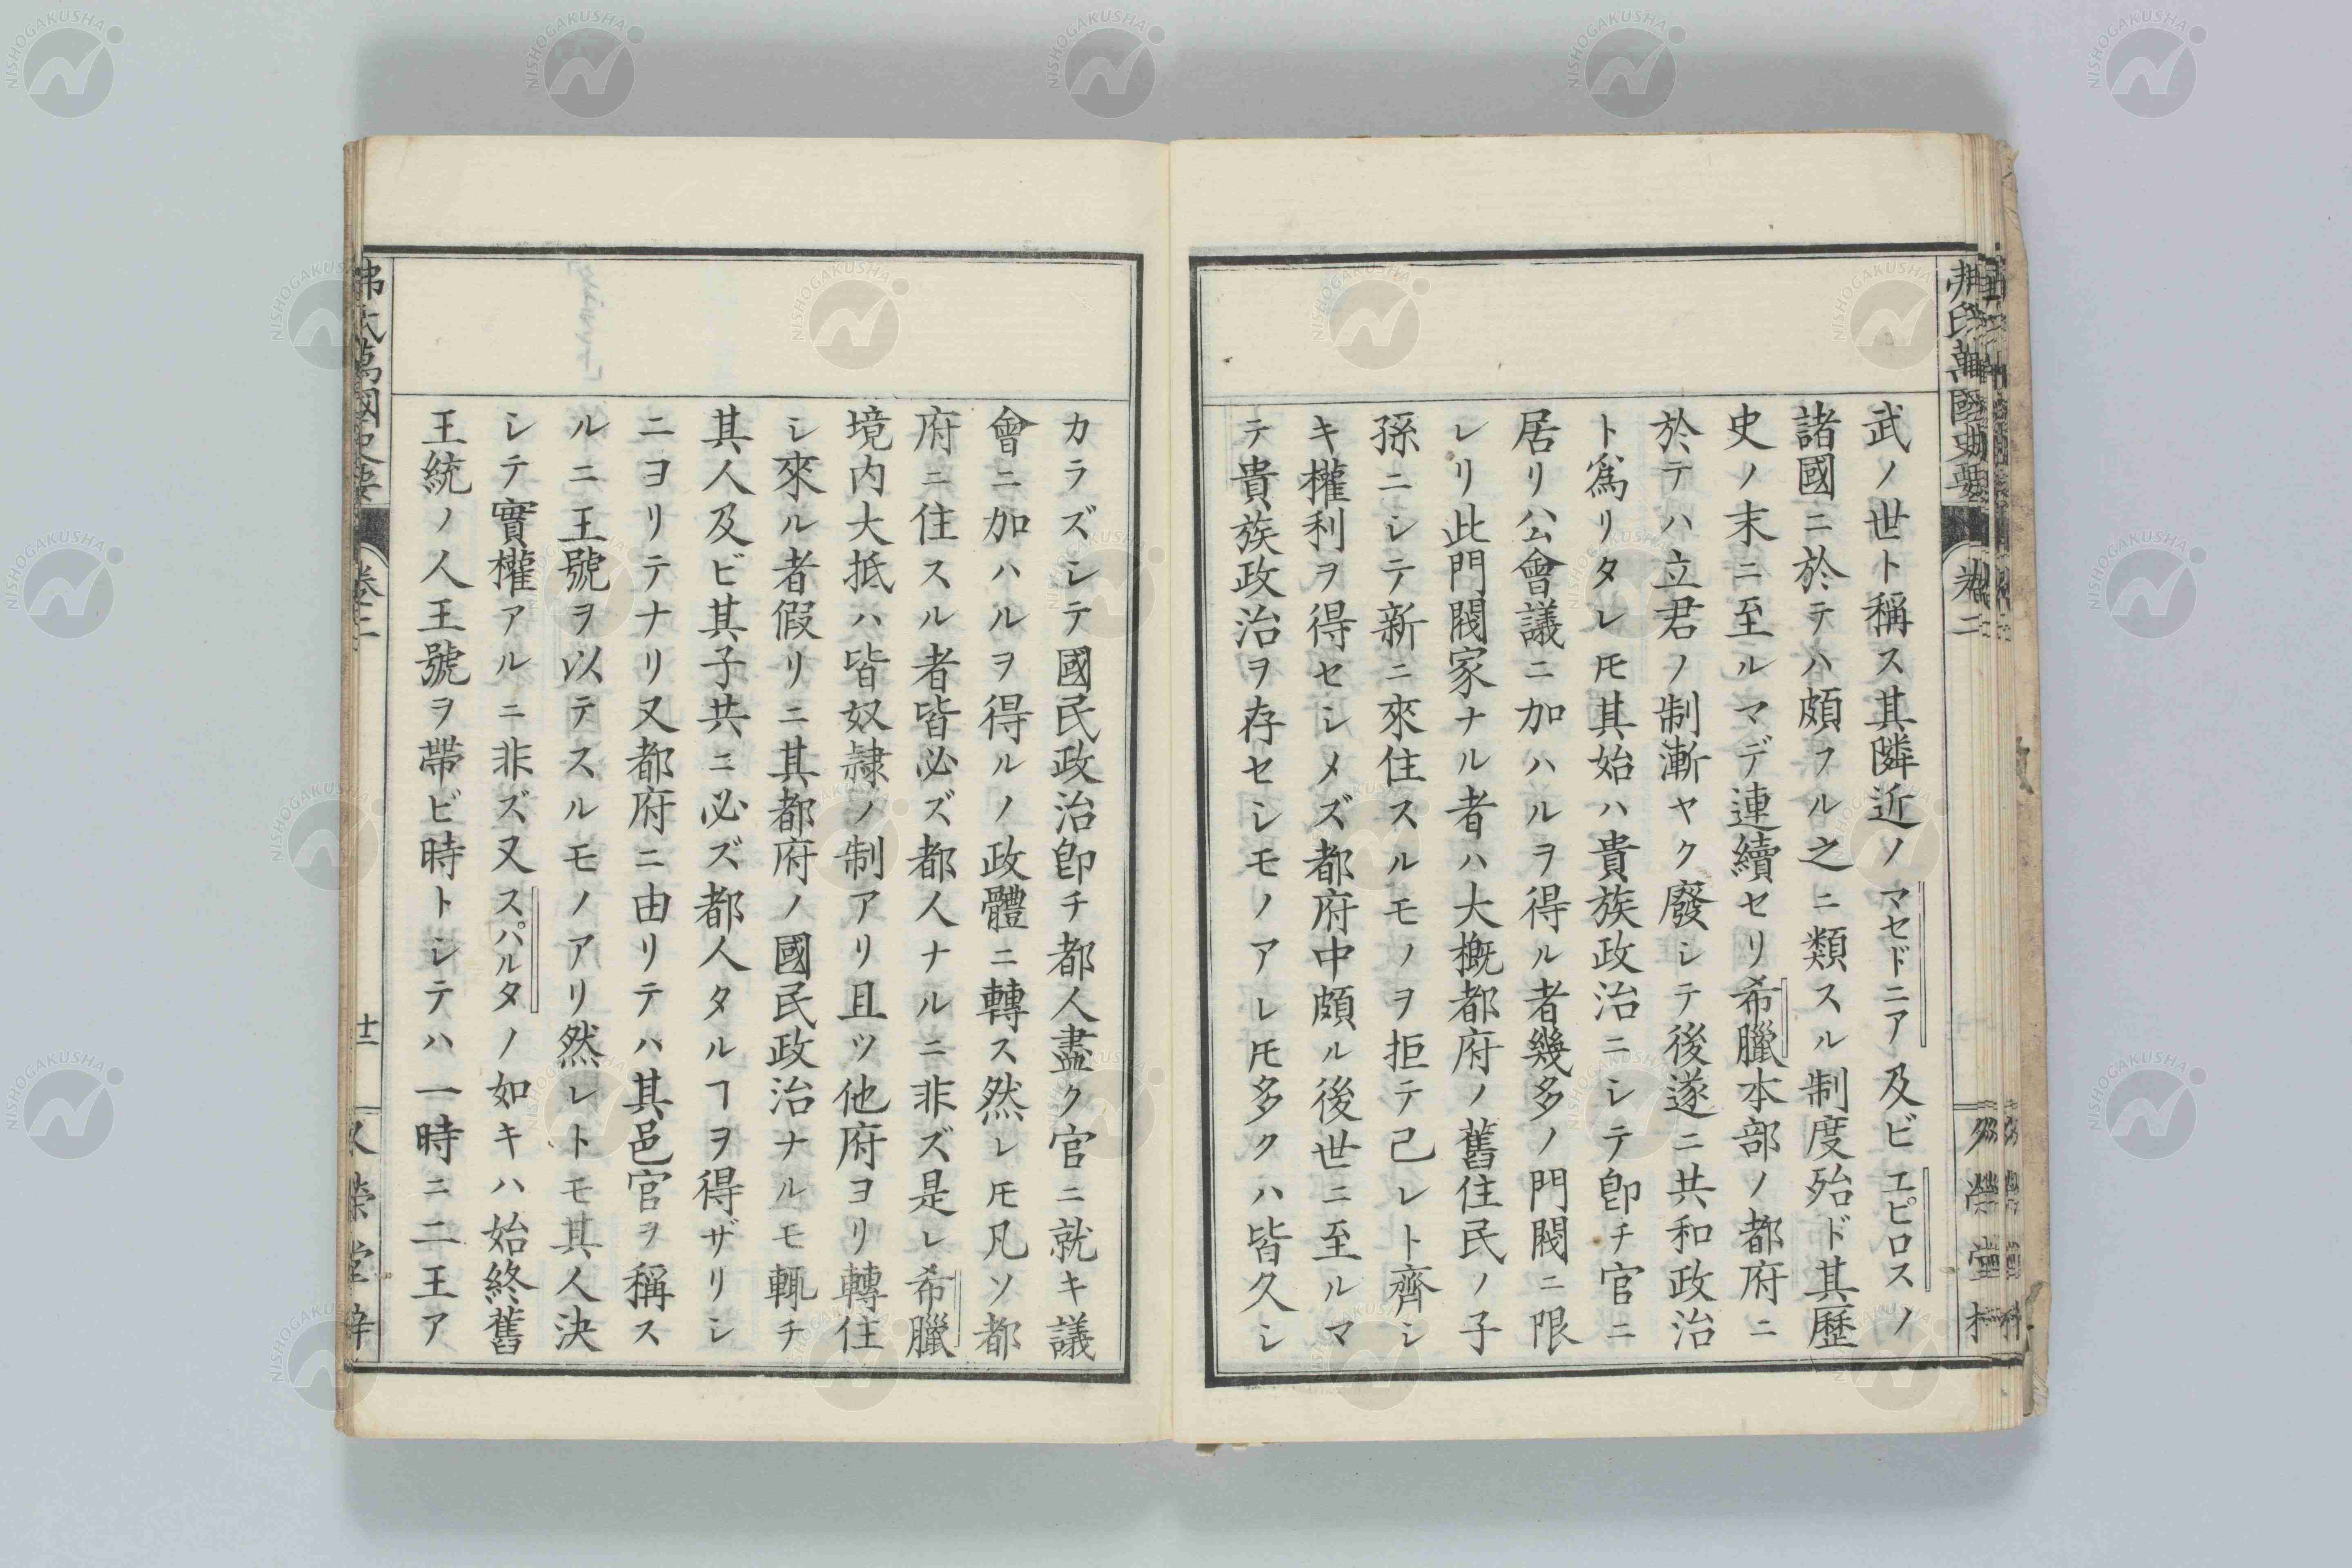 武ノ世ト稱ス其隣近ノマセドニア及ビエピロスノ
諸國ニ於テハ頗フル之ニ類スル制度殆ド其歷
史ノ末ニ至ルマデ連續セリ希臘本部ノ都府ニ
於テハ立君ノ制漸ヤク廢シテ後遂ニ共和政治
ト爲リタレ𪜈其始ハ貴族政治ニシテ卽チ官ニ
居リ公會議ニ加ハルヲ得ル者幾多ノ門閥ニ限
レリ此門閥家ナル者ハ大槪都府ノ舊住民ノ子
孫ニシテ新ニ來住スルモノヲ拒テ己レト齊シ
キ權利ヲ得セシメズ都府中頗ル後世ニ至ルマ
テ貴族政治ヲ存セシモノアレ𪜈多クハ皆久シ
カラズシテ國民政治卽チ都人盡ク官ニ就キ議
會ニ加ハルヲ得ルノ政體ニ轉ス然レ𪜈凡ソ都
府ニ住スル者皆必ズ都人ナルニ非ズ是レ希臘
境内大抵ハ皆奴隷ノ制アリ且ツ他府ヨリ轉住
シ來ル者假リニ其都府ノ國民政治ナルモ輒チ
其人及ビ其子共ニ必ズ都人タルヿヲ得ザリシ
ニヨリテナリ又都府ニ由リテハ其邑官ヲ稱ス
ルニ王號ヲ以テスルモノアリ然レトモ其人決
シテ實權アルニ非ズ又スパルタノ如キハ始終舊
王統ノ人王號ヲ帶ビ時トシテハ一時ニ二王ア
弗氏萬國史要
卷二
十二
NISHOGAKUSHA